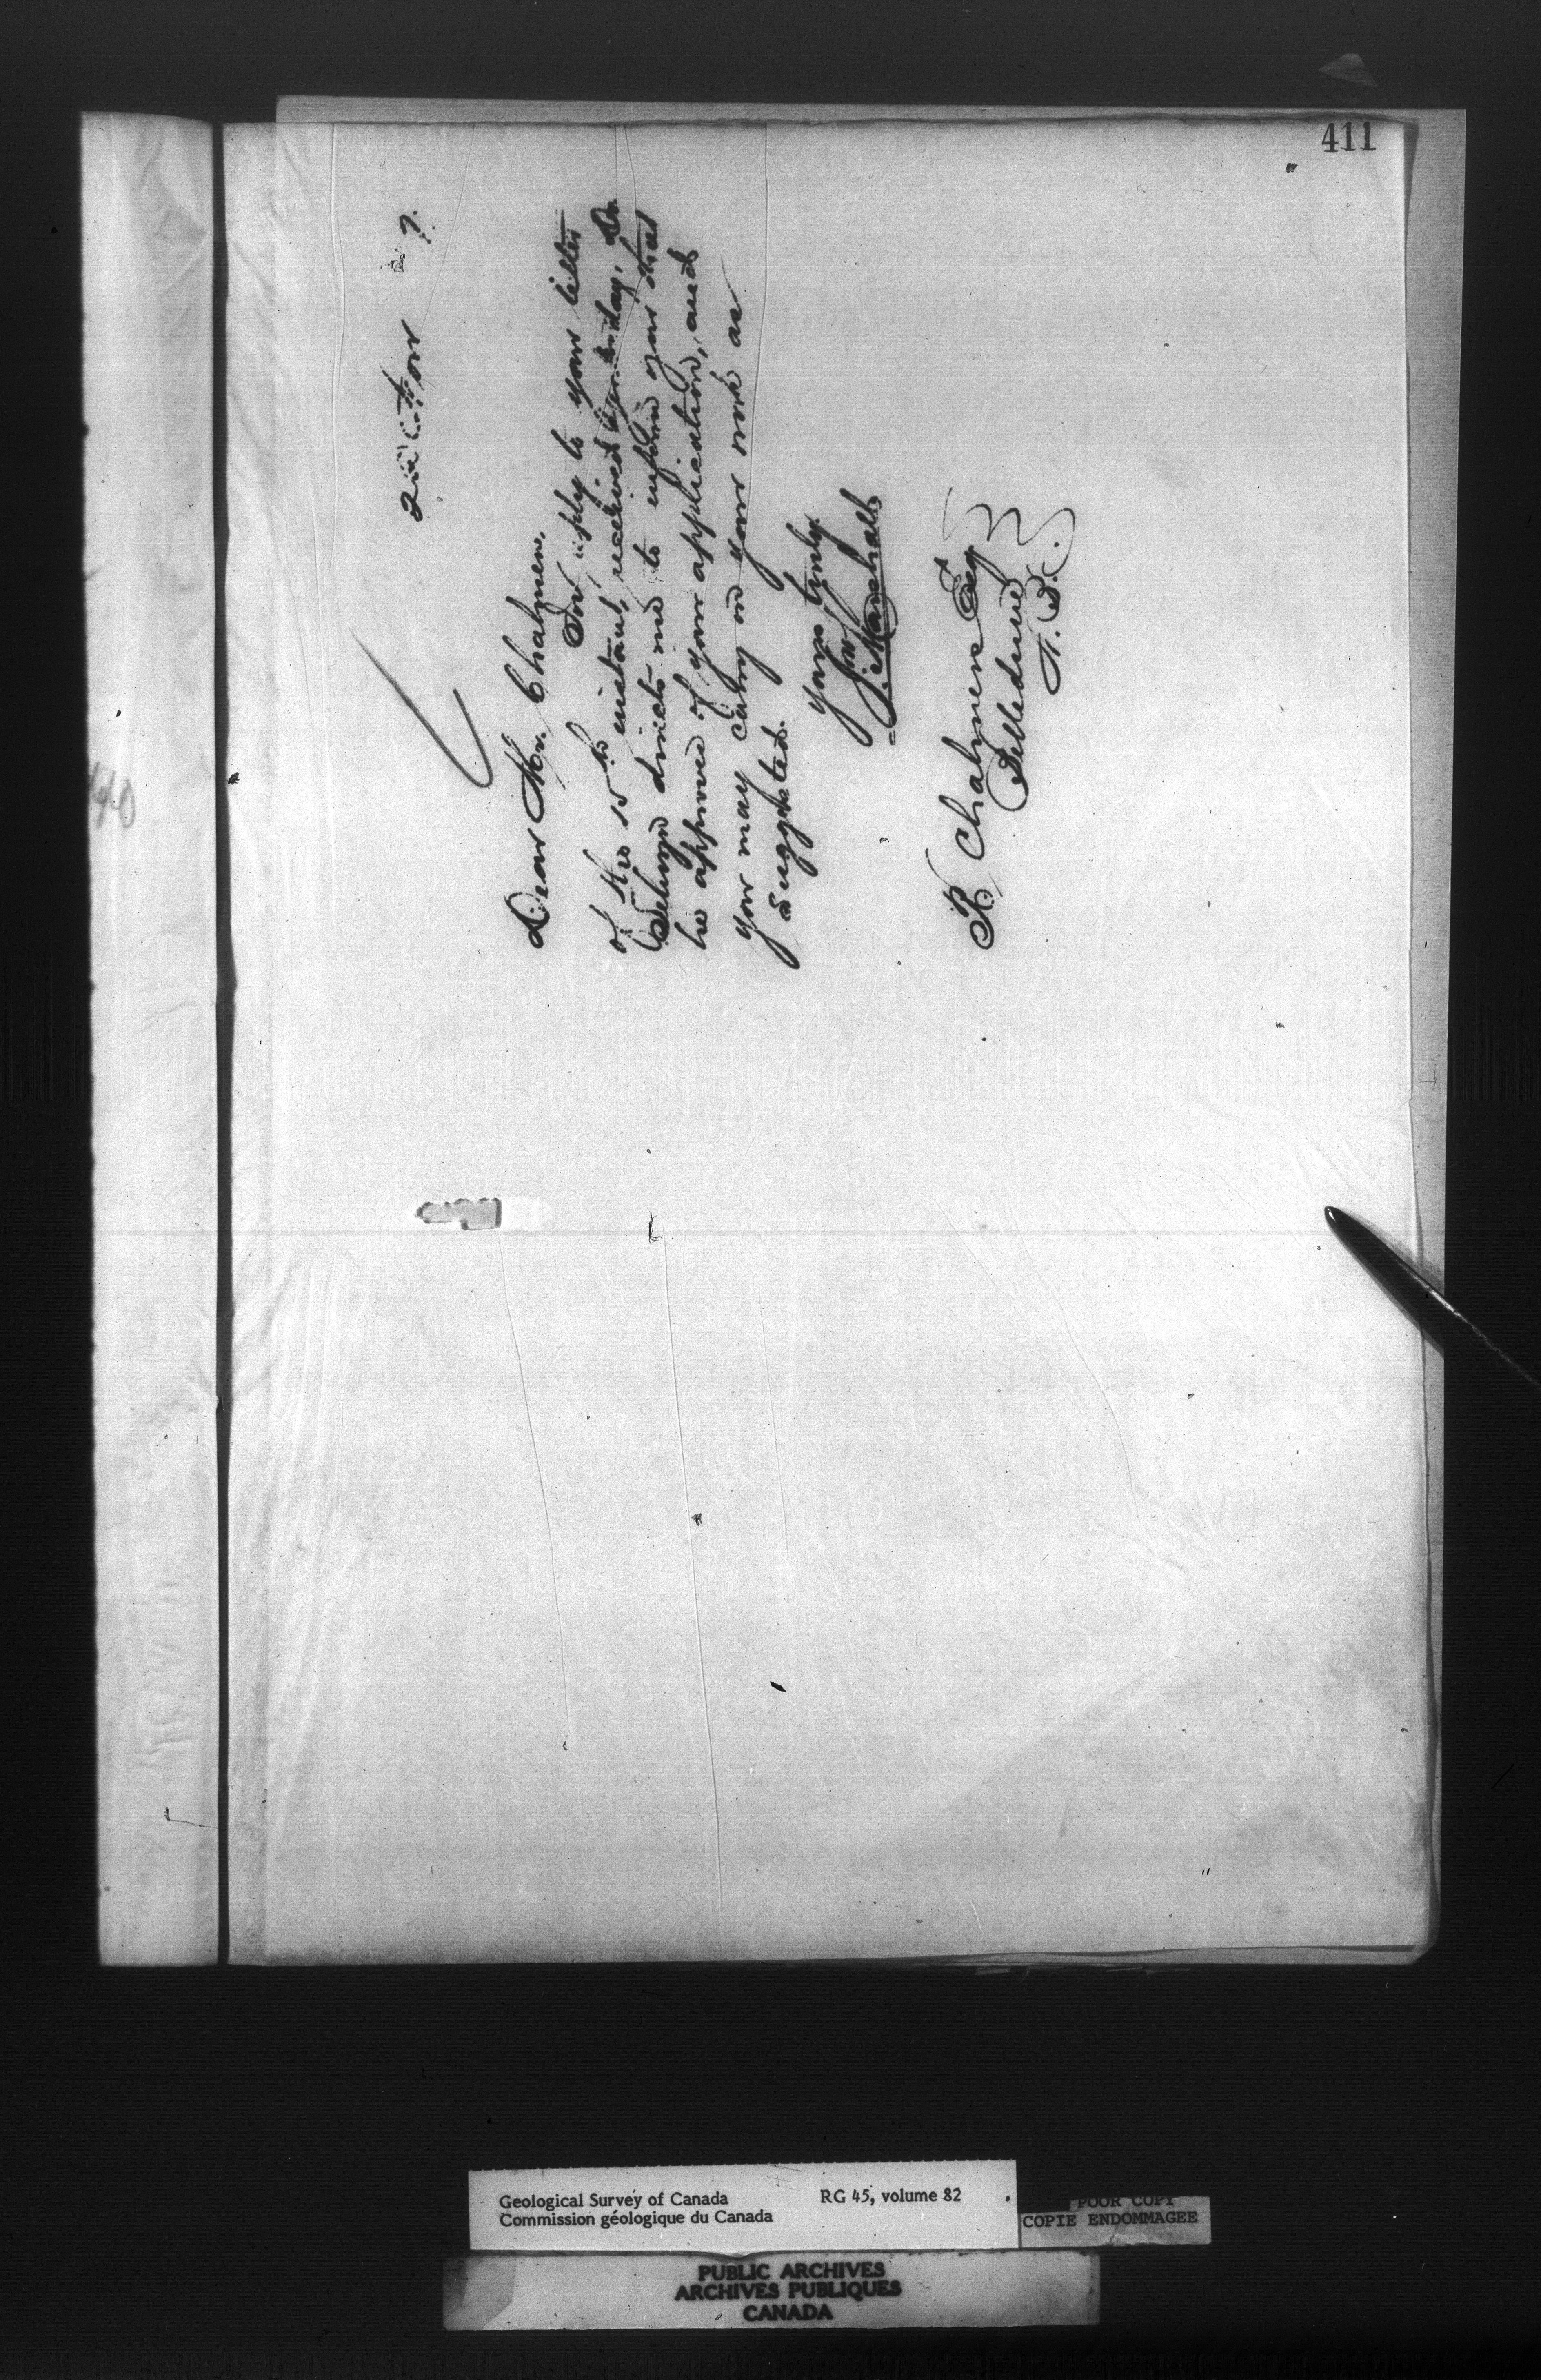 411
22nd Octor 87.
Dear Mr. Chalmers,
In reply to your letter
of the 15th instant, received yesterday, Dr
Selwyn directs me to inform you that
he approves of your application, and
you may carry on your work as
suggested.
Yours truly
J. Marshall
R Chalmers Esq
Belledune
N. B.
Geological Survey of Canada RG 45, volume 82
Commission géologique du Canada
POOR COPY
COPIE ENDOMMAGEE
PUBLIC ARCHIVES
ARCHIVES PUBLIQUES
CANADA